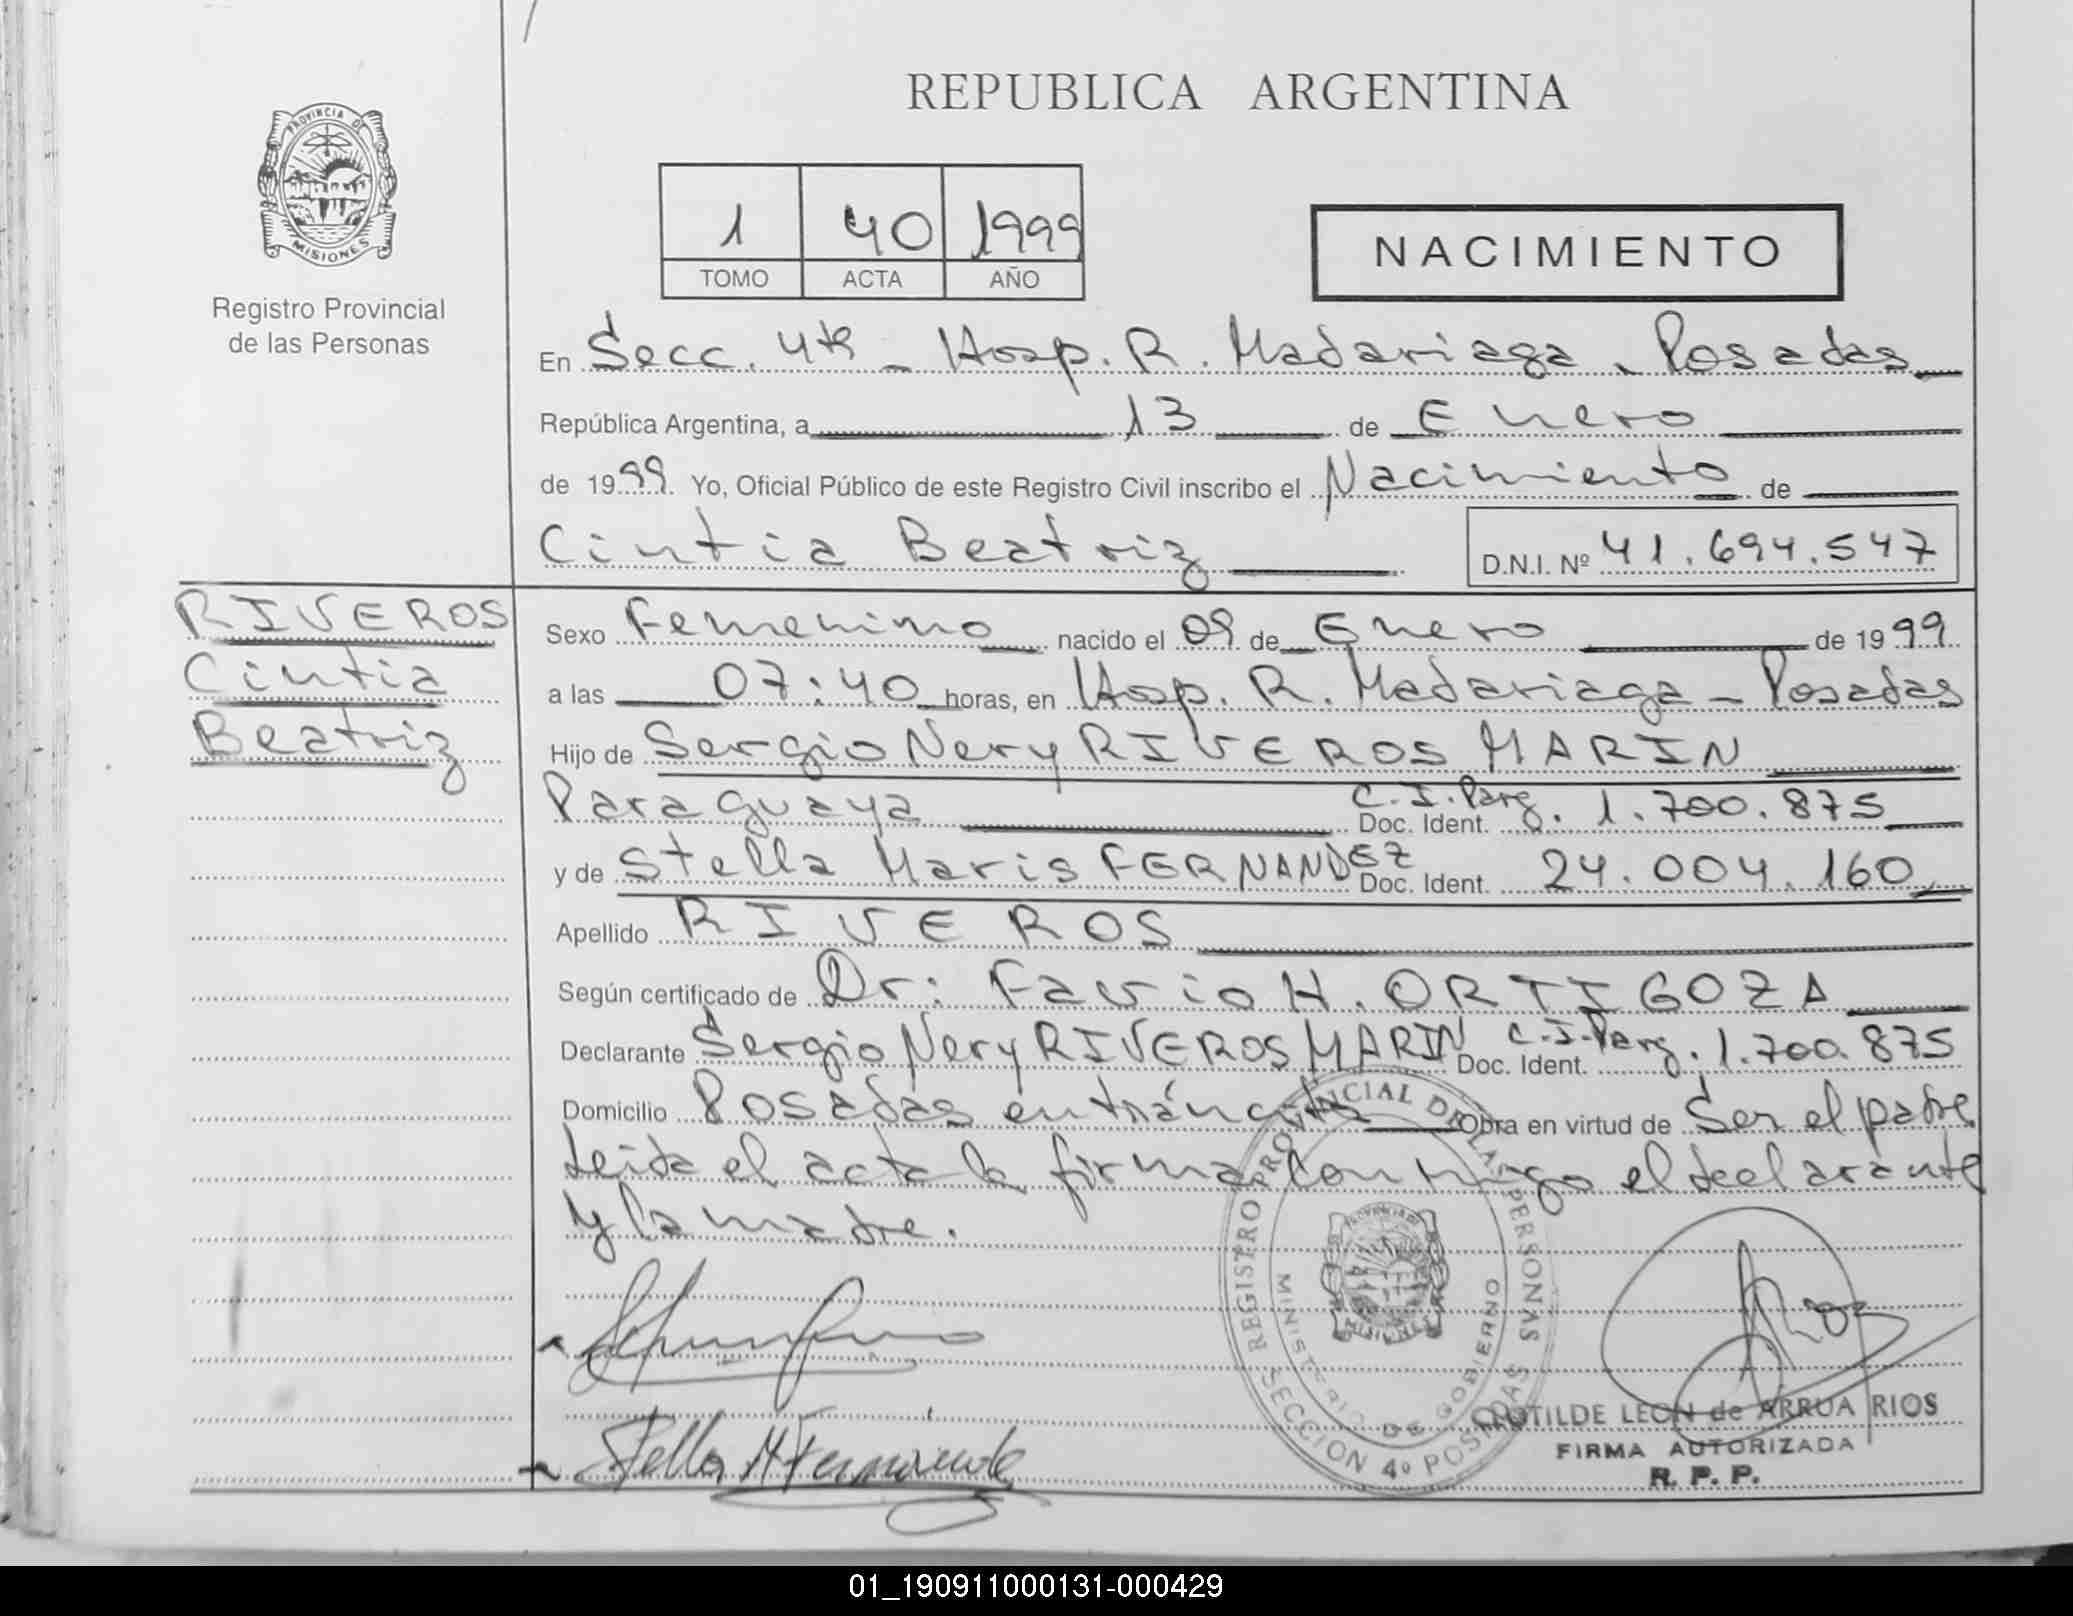 REPUBLICA ARGENTINA
PROVINCIA DE
MISIONES
Registro Provincial
de las Personas
1 40 1999
TOMO ACTA AÑO
NACIMIENTO
En Secc. 4ta - Hosp. R. Madariaga - Posadas
República Argentina, a 13 de Enero
de 1999. Yo, Oficial Público de este Registro Civil inscribo el Nacimiento de
Cintia Beatriz D.N.I. Nº 41.694.547
RIVEROS
Cintia
Beatriz
Sexo Femenino nacido el 09 de Enero de 1999
a las 07:40 horas, en Hosp. R. Madariaga - Posadas
Hijo de Sergio Nery RIVEROS MARIN
Paraguaya Doc. Ident. C.I. Parg. 1.700.875
y de Stella Maris FERNANDEZ Doc. Ident. 24.004.160
Apellido RIVEROS
Según certificado de Dr: Favio H. ORTIGOZA
Declarante Sergio Nery RIVEROS MARIN Doc. Ident. C.I. Parg. 1.700.875
Domicilio Posadas en tránsito Obra en virtud de Ser el padre
Leida el acta la firma conmigo el declarante
y la madre.
REGISTRO PROVINCIAL DE LAS PERSONAS
MINISTERIO DE GOBIERNO
SECCION 4º POSADAS
MISIONES
Stella M Fernández
CLOTILDE LEON de ARRUA RIOS
FIRMA AUTORIZADA
R. P. P.
01_190911000131-000429